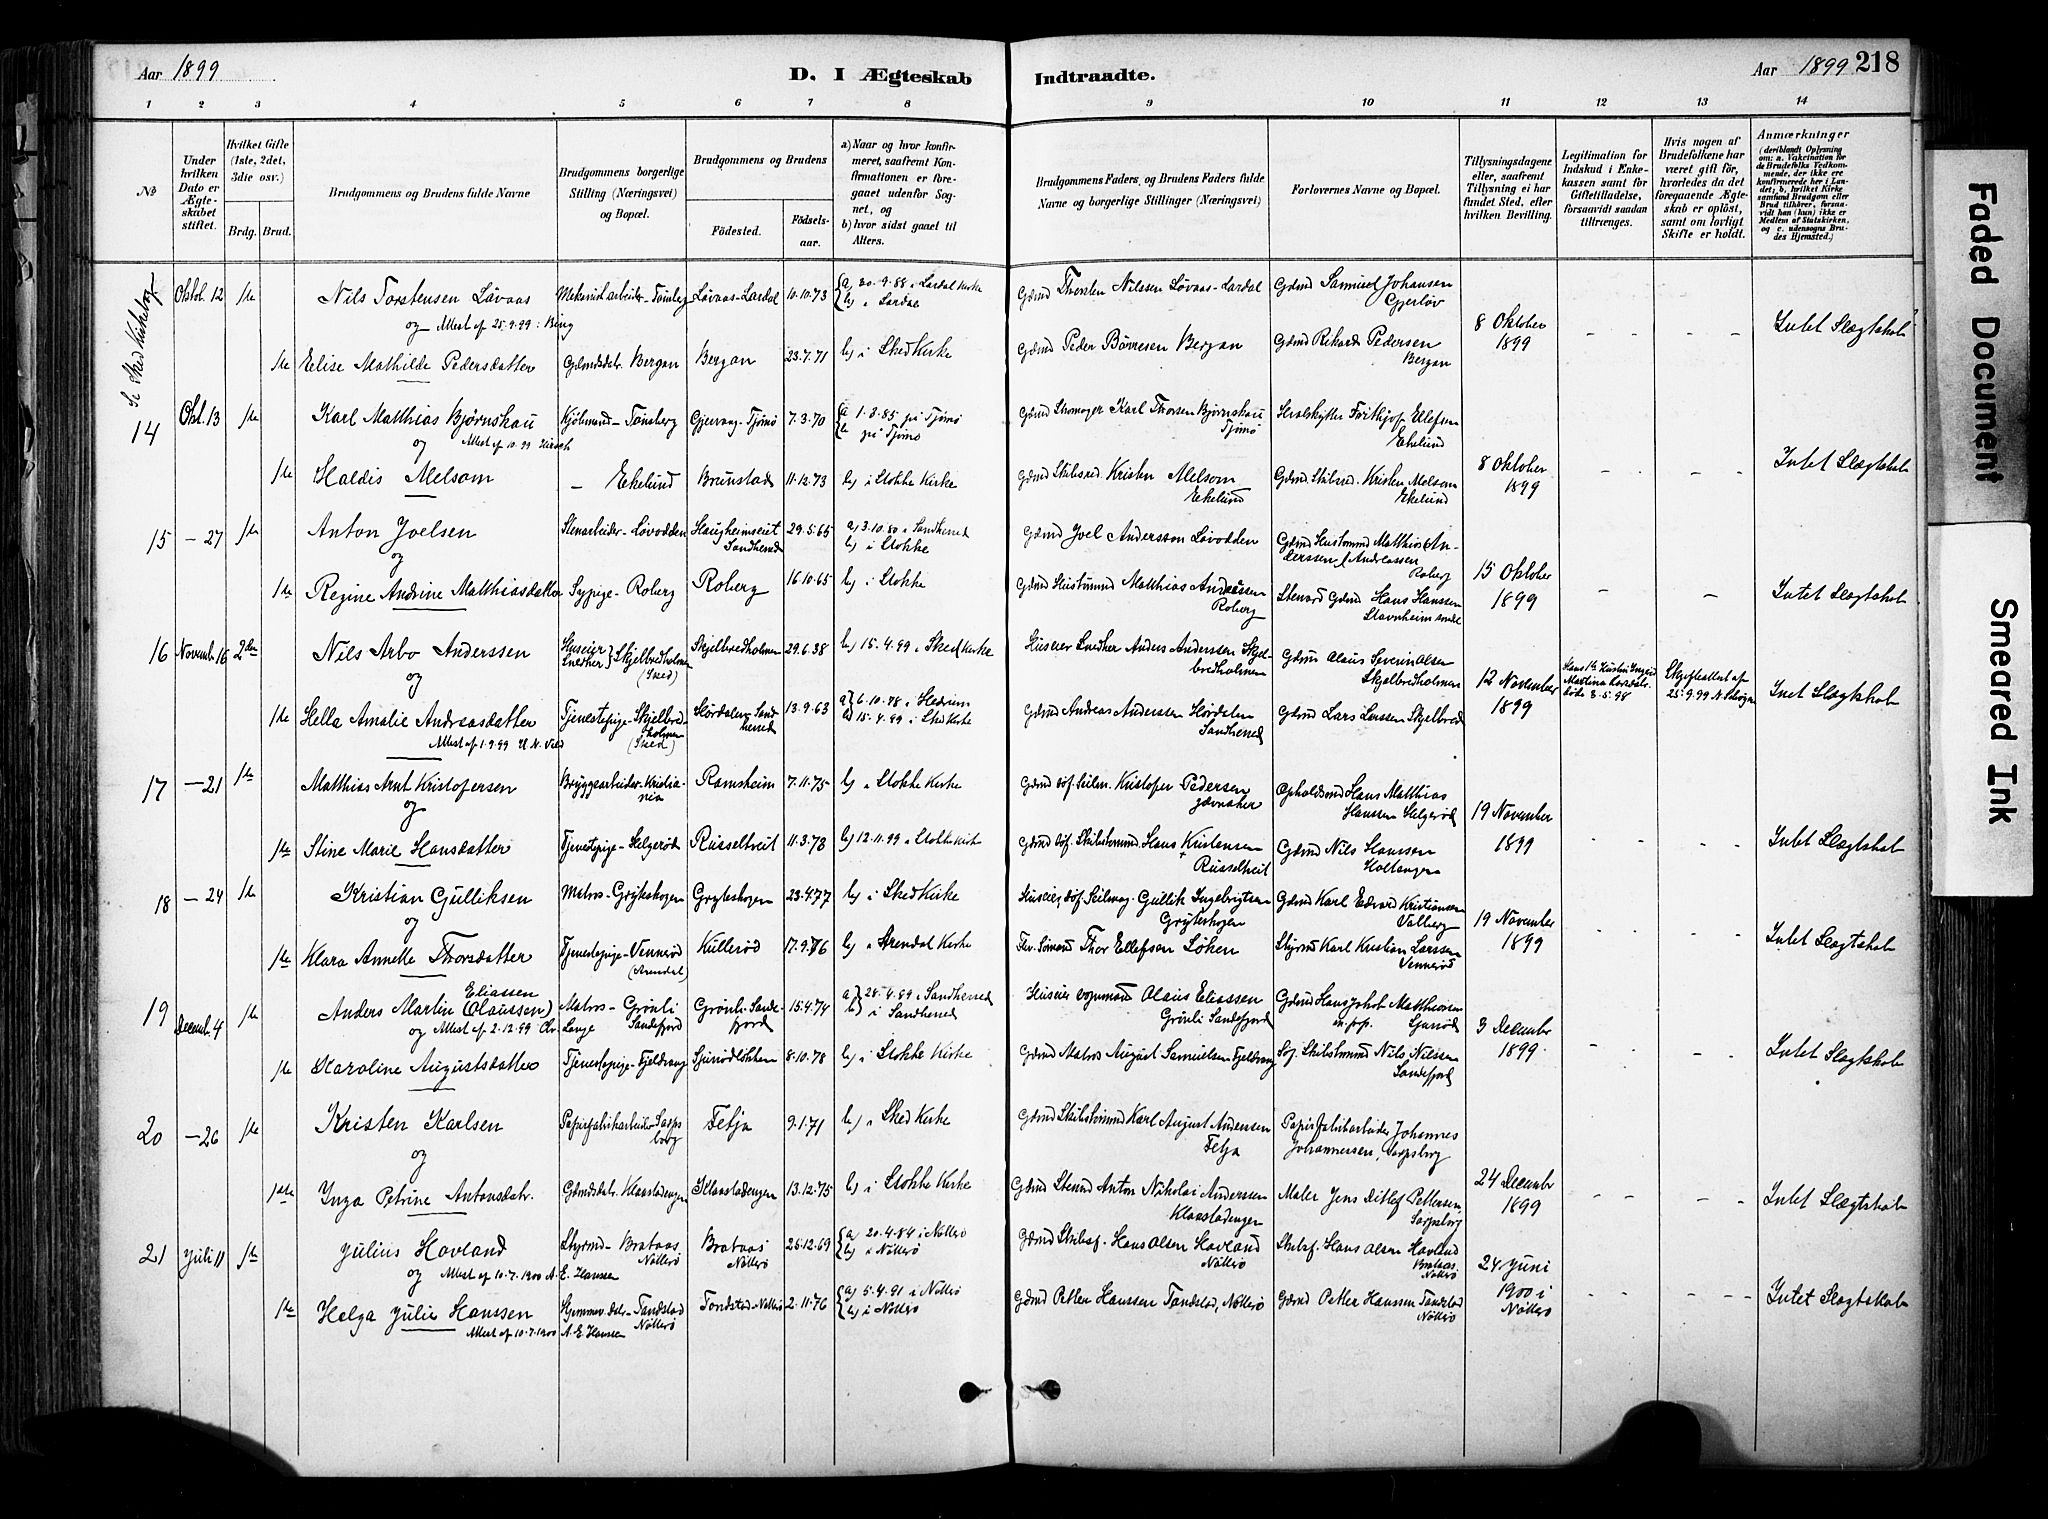 Aar 1899
D. I Ægteskab
Indtraadte.
Aar 1899
218
1 2 3 4 5 6 7 8 9 10 11 12 13 14
No
Under hvilken Dato er Ægteskabet stiftet.
Hvilket Gifte (1ste, 2det, 3die osv.)
Brdg. Brud.
Brudgommens og Brudens fulde Navne
Brudgommens borgerlige Stilling (Næringsvei) og Bopæl.
Brudgommens og Brudens
Födested.
Födselsaar.
a) Naar og hvor konfirmeret, saafremt Konfirmationen er foregaaet udenför Sognet, og
b) hvor sidst gaaet til Alters.
Brudgommens Faders, og Brudens Faders fulde Navne og borgerlige Stillinger (Næringsvei)
Forlovernes Navne og Bopæl.
Tillysningsdagene eller, saafremt Tillysning ei har fundet Sted, efter hvilken Bevilling.
Legitimation for Indskud i Enkekassen samt for Giftetilladelse, forsaavidt saadan tiltrænges.
Hvis nogen af Brudefolkene har været gift för, hvorledes da det foregaaende Ægteskab er oplöst, samt om lovligt Skifte er holdt.
Anmærkninger
(deriblandt Oplysning om: a. Vakcination for de Brudefolks Vedkommende, der ikke ere konfirmerede her i Landet; b. hvilket Kirkesamfund Brudgom eller Brud tilhörer, forsaavidt han (hun) ikke er Medlem af Statskirken, og c. udensogns Brudes Hjemsted.)
Oktob. 12 1ste Nils Torstensen Løvaas Mekanisk arbeider Tønsberg Løvaas-Lardal 10.10.73 a) 20-9-88 i Lardal Kirke b) i Lardal Gdmd Thorsten Nilssen Løvaas-Lardal Gdmd Samuel Johansen Gjerløv
og Attest af 25.9.99: Bing
8 Oktober 1899 - - Intet Slægtskab
1ste Elise Mathilde Pedersdatter Gdmdsdatr. Bergan Bergan 23.7.71 b) i Sked Kirke Gdmd Peder Børresen Bergan Gdmd Rikard Pedersen Bergan
14 Okt. 13 1ste Karl Matthias Bjørnskau Kjøbmand - Tønsberg Gjervaag-Tjømø 7.3.70 a 1.3.85 på Tjømø b på Tjømø Gdmd Karl Thorsen Bjørnskau Tjømø Frithjof Ellefsen Ekelund
og Attest af 10.99
8 Oktober 1899 - - Intet Slægtskab
1ste Haldis Melsom - Ekelund Brunstad 11.12.73 b) i Stokke Kirke Gdmd Skibsred Kristen Melsom Ekelund Gdmd. Skibsred. Kristen Melsom Ekelund
15 - 27 1ste Anton Joelsen Stenarbeider - Løvodden Haugheimseiet Sandherred 29.5.65 a) 3.10.80 i Sandherred b) i Stokke Gdmd Joel Anderssen Løvodden Gdmd Matthias Anderssen (Andreassen Roberg
og
15 Oktober 1899 - - Intet Slægtskab
1ste Regine Andrine Matthiasdatter Sypige - Roberg Roberg 16.10.65 b) i Stokke Gdmd Matthias Andreassen Roberg Gdmd Hans Hanssen
16 Novemb. 16 2den Nils Arbo Anderssen Huseier Snedker Skjelbredholmen (Sked) Skjelbredholmen 29.6.38 b) 15.4.99 i Sked Kirke Huseier Snedker Anders Anderssen Skjelbredholmen Gdmd Olaus Severin Olsen Skjelbredholmen
og
12 November 1899 Hans 1ste Hustru Ingeid Martina Larsdatr. døde 3.5.98 Skifteattest af 25.9.99 Intet Slægtskab
1ste Hella Amalie Andreasdatter Tjenestepige - Skjelbredholmen (Sked) Hørdalen Sandherred 13.9.63 a) 6.10.78 i Hedrum b) 15.4.99 i Sked Kirke Gdmd Andreas Anderssen Hørdalen Sandherred Gdmd Lars Larssen Skjelbred
Attest af 1.9.99
17 - 21 1ste Matthias Arnt Kristofersen Bryggearbeider - Kristiania Ramsheim 7.11.75 b) i Stokke Kirke Gdmd Kristofer Pedersen Hans Matthias Hanssen Helgerød
og
19 November 1899 - - Intet Slægtskab
1ste Stine Marie Hansdatter Tjenestepige - Helgerød Russeltveit 11.3.78 b) 12.11.99 i Stokke Kirke Gdmd Hans Kristensen Russeltveit Gdmd Nils Hanssen
18 - 24 1ste Kristian Gulliksen Matros - Gryteskogen Gryteskogen 23.4.77 b) i Sked Kirke Huseier Gullik Ingebrigtsen Gryteskogen Gdmd Karl Edvard Kristiansen Valberg
og
19 November 1899 - - Intet Slægtskab
1ste Klara Annette Thorsdatter Tjenestepige - Vennerød (Arendal) Kullerød 17.9.76 b) i Arendal Kirke Thor Ellefsen Løken Styrmd Karl Kristian Larssen Vennerød
19 Decemb. 4 1ste Anders Martin Eliassen (Olaussen) Matros - Grönli Sandefjord Grönli Sandefjord 15.4.74 a) 28-4-89 i Sandherred b) i Sandherred Huseier vognmand Olaus Eliassen Grönli Sandefjord Gdmd Hans Jakob Matthiesen
og Attest af 2.12.99 Chr. Lange
3 December 1899 - - Intet Slægtskab
1ste Karoline Augustsdatter Tjenestepige - Fjeldvang 8.10.78 b) i Stokke Kirke Gdmd Matros August Samuelsen Fjeldvang Nils Nilssen Sandefjord
20 - 26 1ste Kristen Karlsen Papirfabrikarbeider Sarpsborg Fetja 9.1.71 b) i Sked Kirke Gdmd Karl August Andersen Fetja Papirfabrikarbeider Johannes Johannessen, Sarpsborg
og
24 December 1899 - - Intet Slægtskab
1ste Inga Petrine Antonsdatr. Gdmdsdatr. Klaastadengen Klaastadengen 13.12.75 b) i Stokke Kirke Gdmd Anton Nikolai Anderssen Klaastadengen Maler Jens Ditlef Pettersen, Sarpsborg
21 Juli 11 1ste Julius Hovland Styrmd - Brataas Nötterö Brataas Nötterö 25.12.69 a) 20-4-84 i Nötterö b) i Nötterö Gdmd Skibsf. Hans Olsen Hovland Nötterö Skibsf. Hans Olsen Hovland Brataas, Nötterö
og Attest af 10.7.1900 A. E. Hanssen
24 Juni 1900 i Nötterö - - Intet Slægtskab
1ste Helga Julie Hanssen Tandstad Nötterö Tandstad - Nötterö 2.11.76 a) 5.4.91 i Nötterö b) i Nötterö Gdmd Petter Hanssen Tandstad, Nötterö Gdmd Petter Hanssen Tandstad Nötterö
Attest af 10.7.1900 A. E. Hanssen
Faded Document
Smeared Ink